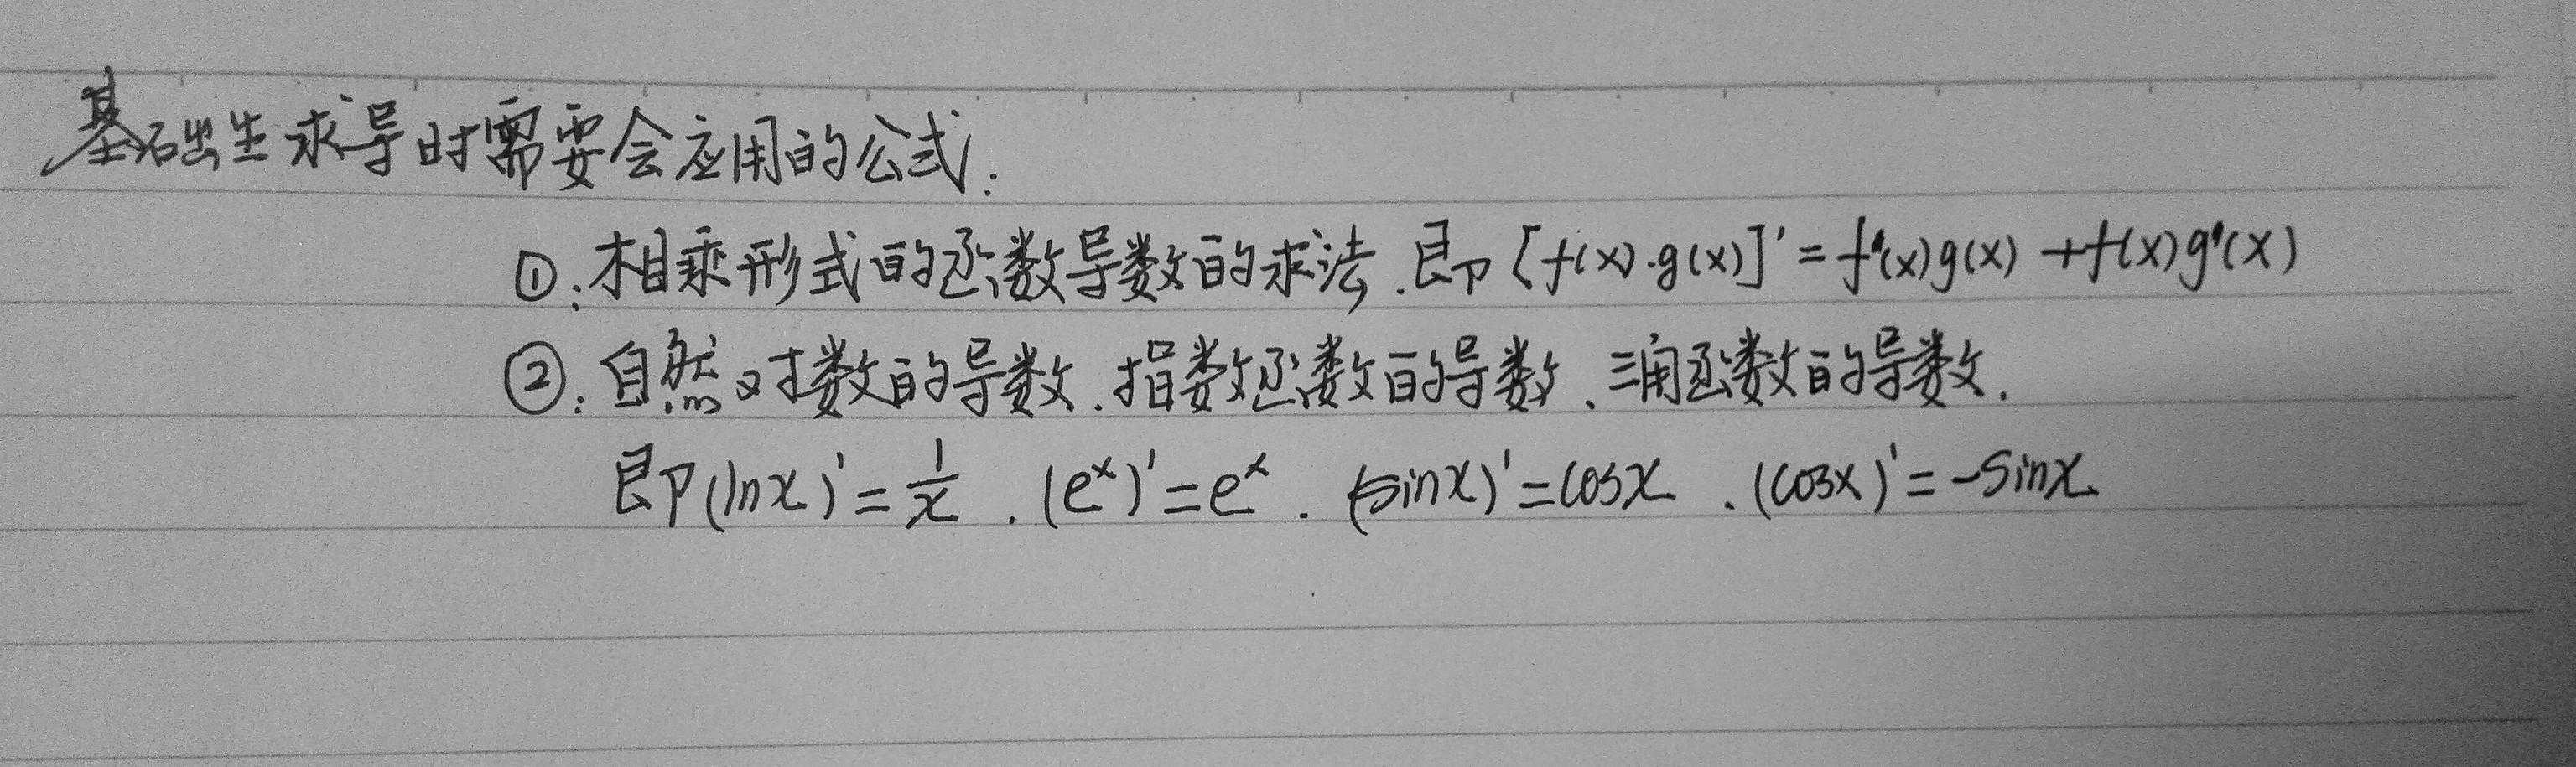 基础生求导时需要会应用的公式:
①:相乘形式的函数导数的求法.即[f(x).g(x)]'=f'(x)g(x)+f(x)g'(x)
②:自然对数的导数.指数函数的导数、三角函数的导数.
即(lnx)'=1/x.(e^x)'=e^x.(sinx)'=cosx.(cosx)'=-sinx